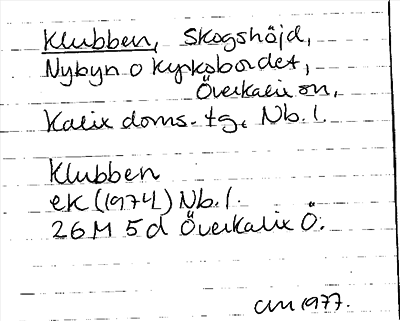 Klubben, Skogshöjd,
Nybyn o Kyrkobordet,
Överkalix sn,
Kalix doms. tg. Nb. l.
Klubben
ek (1974) Nb. l.
26 M 5 d Överkalix Ö.
1977.